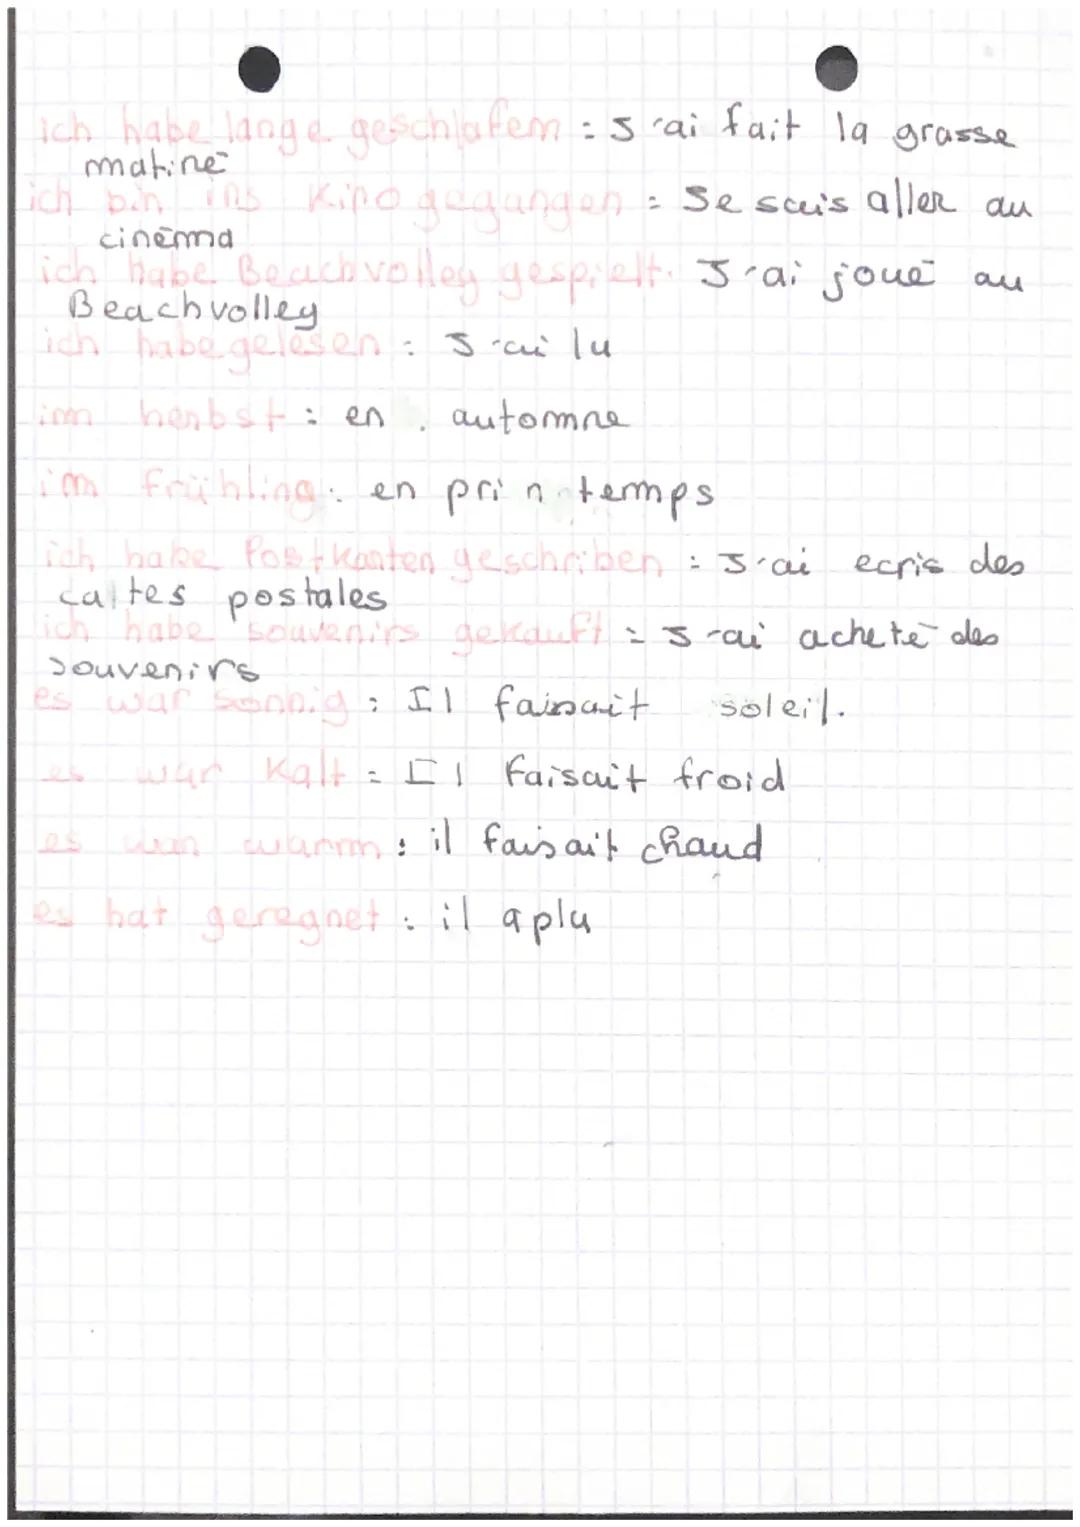 ich habe lange geschlafem : J'ai fait la grasse
matiné
ich bin ins Kino gegangen : Je suis aller au
cinéma
ich habe Beachvolley gespielt. J'ai joué au
Beachvolley
ich habe gelesen : J'ai lu
im henbst : en automne
im frühling : en printemps
ich habe Postkanten geschriben : J'ai ecris des
cartes postales
ich habe souvenirs gekauft : J'ai acheté des
souvenirs
es war sonnig : Il faisait soleil.
es war Kalt : Il faisait froid
es wan warm : il faisait chaud
es hat geregnet : il a plu